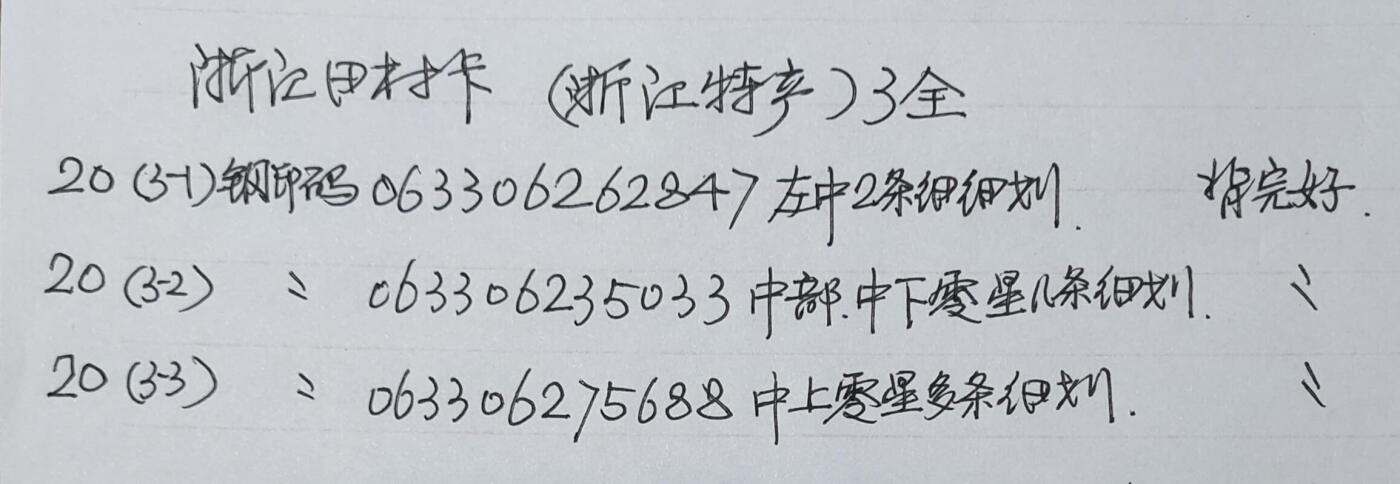 浙江田村卡 (浙江特产)3全
20 (3-1)钢印码 063306262847 左中2条细细划. 背完好.
20 (3-2) 〃 063306235033 中部.中下零星几条细划. 〃
20 (3-3) 〃 063306275688 中上零星多条细划. 〃